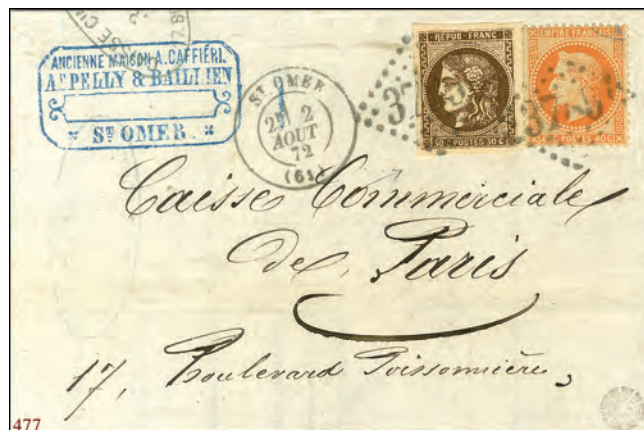 ANCIENNE MAISON A. CAFFIÉRI.
APPELLY & BAILLIEN
ST OMER.
ST OMER
2
AOUT
72
(61)
RÉPUB. FRANC.
30 C POSTES 30 C
EMPIRE FRANÇAIS
POSTES 40 C
Caisse Commerciale
de Paris
17, Boulevard Poissonnière,
477